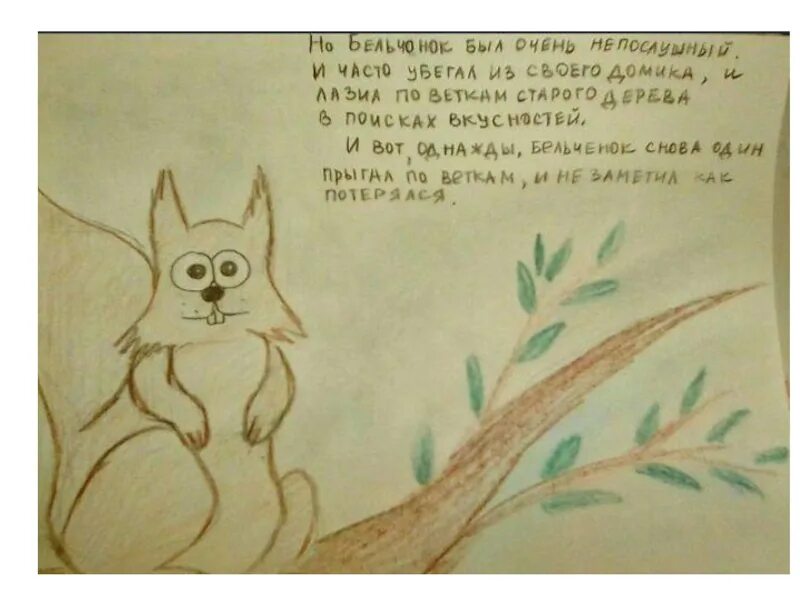 Но Бельчонок был очень непослушный.
И часто убегал из своего домика, и
лазил по веткам старого дерева
в поисках вкусностей.
И вот, однажды, Бельченок снова один
прыгал по веткам, и не заметил как
потерялся.